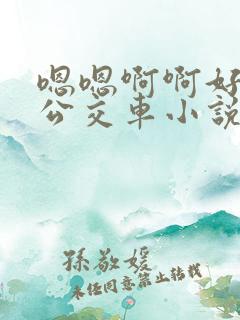 嗯嗯啊啊好
公交车小说
孙敬媛
未经同意禁止转载